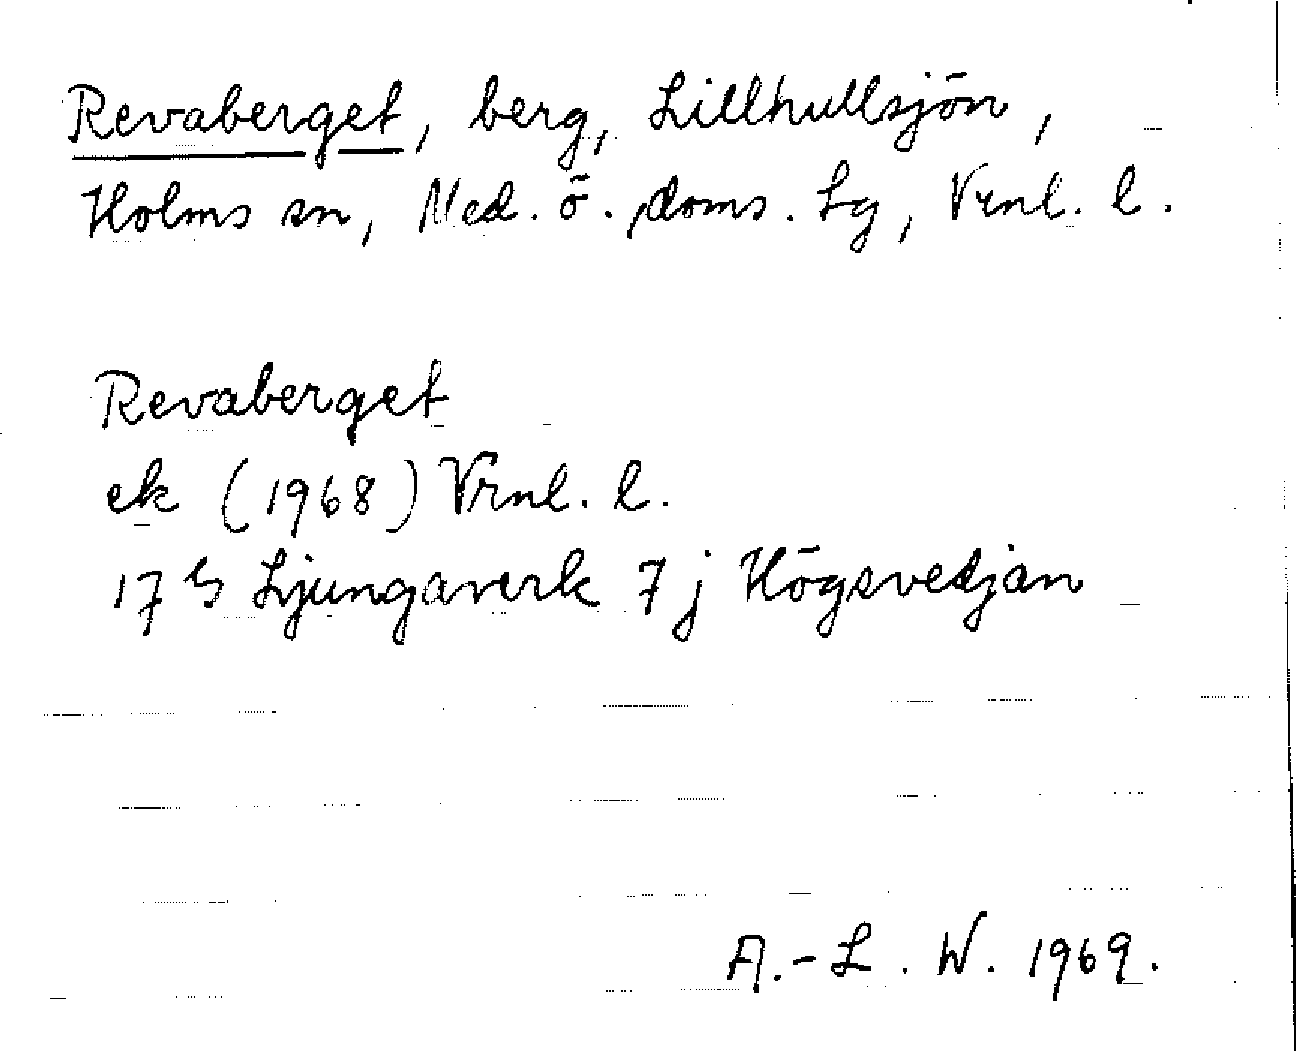 Revaberget, berg, Lillhullsjön,
Holms sn, Med. ö. doms. Lg, Vrnl. l.
Revaberget
ek (1968) Vrnl. l.
17 G Ljungaverk 7 j Högsvedjan
A.-L. W. 1969.